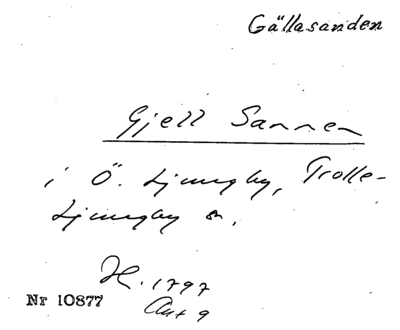 Gällasanden
Gjell Sannen
i Ö. Ljungby, Trolle-
Ljungby s.
H. 1797
Akt 9
Nr 10877